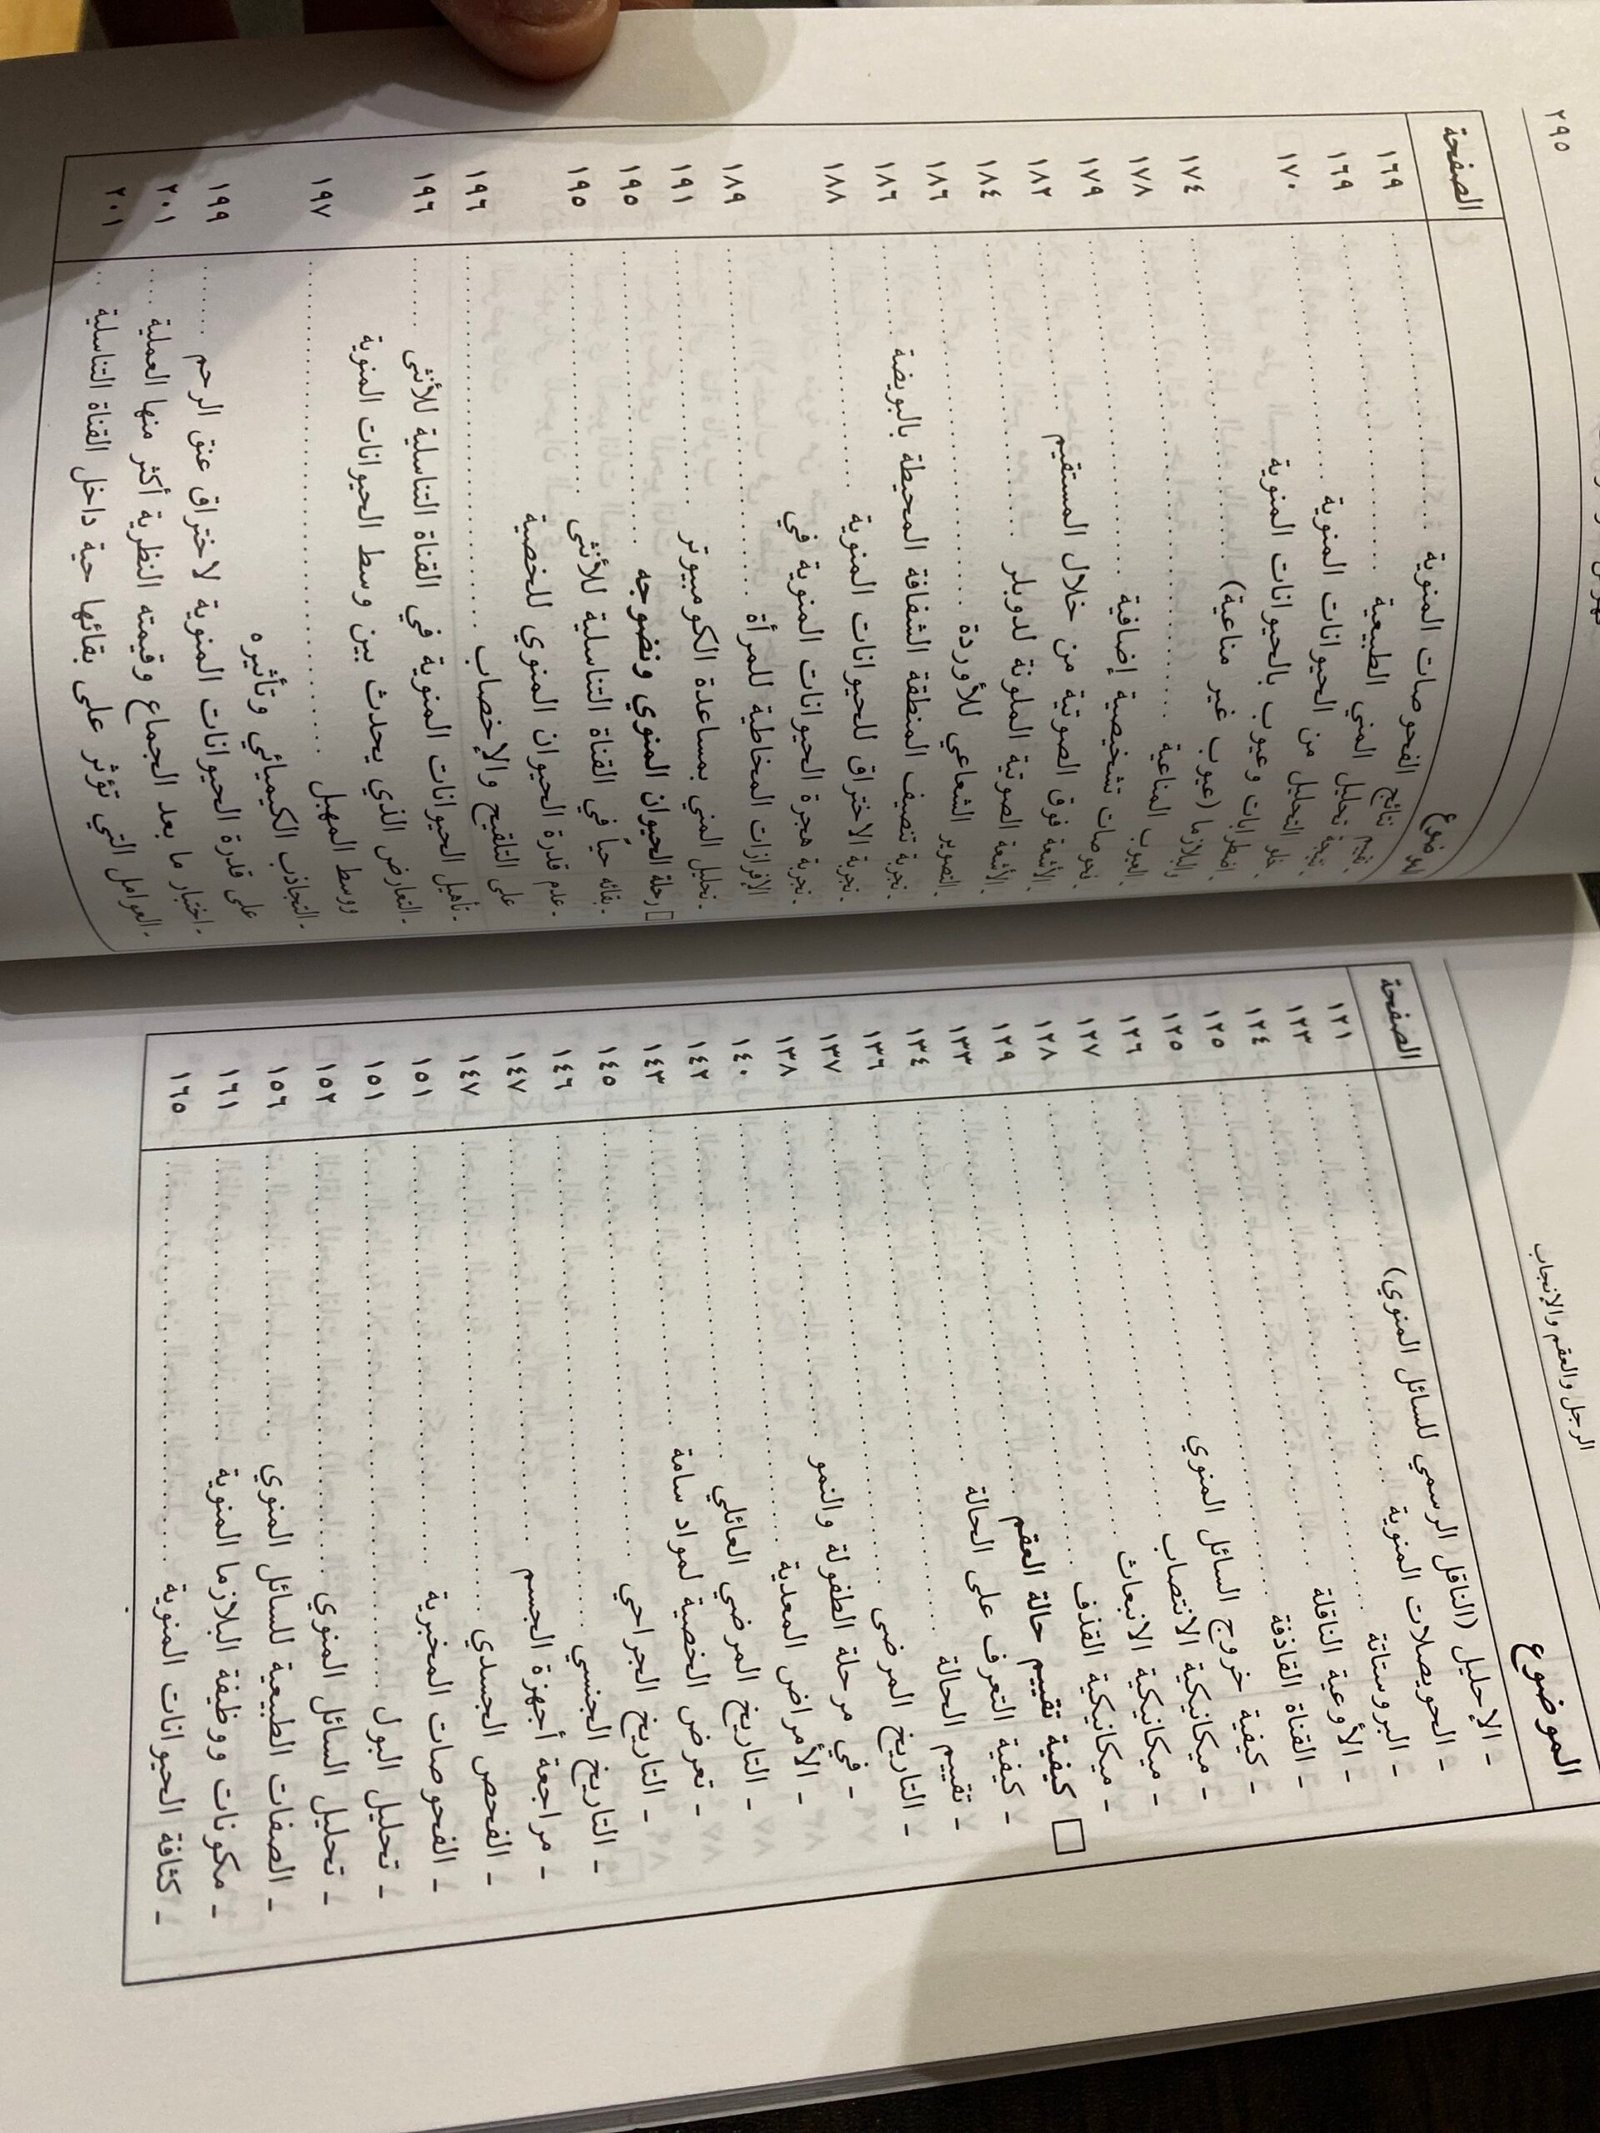 الرجل والعقم والإنجاب
الموضوع الصفحة
- الإحليل (الناقل الرسمي للسائل المنوي) ١٢١
- الحويصلات المنوية ١٢٣
- البروستاتة ١٢٤
- الأوعية الناقلة ١٢٥
- القناة القاذفة ١٢٥
- كيفية خروج السائل المنوي ١٢٦
- ميكانيكية الانتصاب ١٢٧
- ميكانيكية الانبعاث ١٢٨
- ميكانيكية القذف ١٢٩
□ كيفية تقييم حالة العقم ١٣٣
- كيفية التعرف على الحالة ١٣٤
- تقييم الحالة ١٣٦
- التاريخ المرضى ١٣٧
- في مرحلة الطفولة والنمو ١٣٨
- الأمراض المعدية ١٤٠
- التاريخ المرضي العائلي ١٤٢
- تعرض الخصية لمواد سامة ١٤٣
- التاريخ الجراحي ١٤٥
- التاريخ الجنسي ١٤٦
- مراجعة أجهزة الجسم ١٤٧
- الفحص الجسدي ١٤٧
- الفحوصات المخبرية ١٥١
- تحليل البول ١٥١
- تحليل السائل المنوي ١٥٢
- الصفات الطبيعية للسائل المنوي ١٥٦
- مكونات ووظيفة البلازما المنوية ١٦١
- كثافة الحيوانات المنوية ١٦٥
٢٩٥
الموضوع الصفحة
الفحوصات المنوية ١٦٩
- تقييم نتائج تحليل المني الطبيعية ١٦٩
- نتيجة تحليل من الحيوانات المنوية ١٧٠
- خلو التحليل وعيوب بالحيوانات المنوية
- اضطرابات
والبلازما (عيوب غير مناعية) ١٧٤
- العيوب المناعية ١٧٨
- فحوصات تشخيصية إضافية ١٧٩
- الأشعة فوق الصوتية من خلال المستقيم ١٨٢
- الأشعة الصوتية الملونة لدوبلر ١٨٤
- التصوير الشعاعي للأوردة ١٨٦
- تجربة تصيف المنطقة الشفافة المحيطة بالبويضة ١٨٦
- تجربة الاختراق للحيوانات المنوية ١٨٨
- تجربة هجرة الحيوانات المنوية في
الإفرازات المخاطية للمرأة ١٨٩
- تحليل المني بمساعدة الكومبيوتر ١٩١
□ رحلة الحيوان المنوي ونضوجه ١٩٥
- بقائه حياً في القناة التناسلية للأنثى ١٩٥
- عدم قدرة الحيوان المنوي للخصية
على التلقيح والإخصاب ١٩٦
- تأهيل الحيوانات المنوية في القناة التناسلية للأنثى ١٩٦
- التعارض الذي يحدث بين وسط الحيوانات المنوية
ووسط المهبل ١٩٧
- التجاذب الكيميائي وتأثيره
على قدرة الحيوانات المنوية لاختراق عنق الرحم ١٩٩
- اختبار ما بعد الجماع وقيمته النظرية أكثر منها العملية ٢٠١
- العوامل التي تؤثر على بقائها حية داخل القناة التناسلية ٢٠١